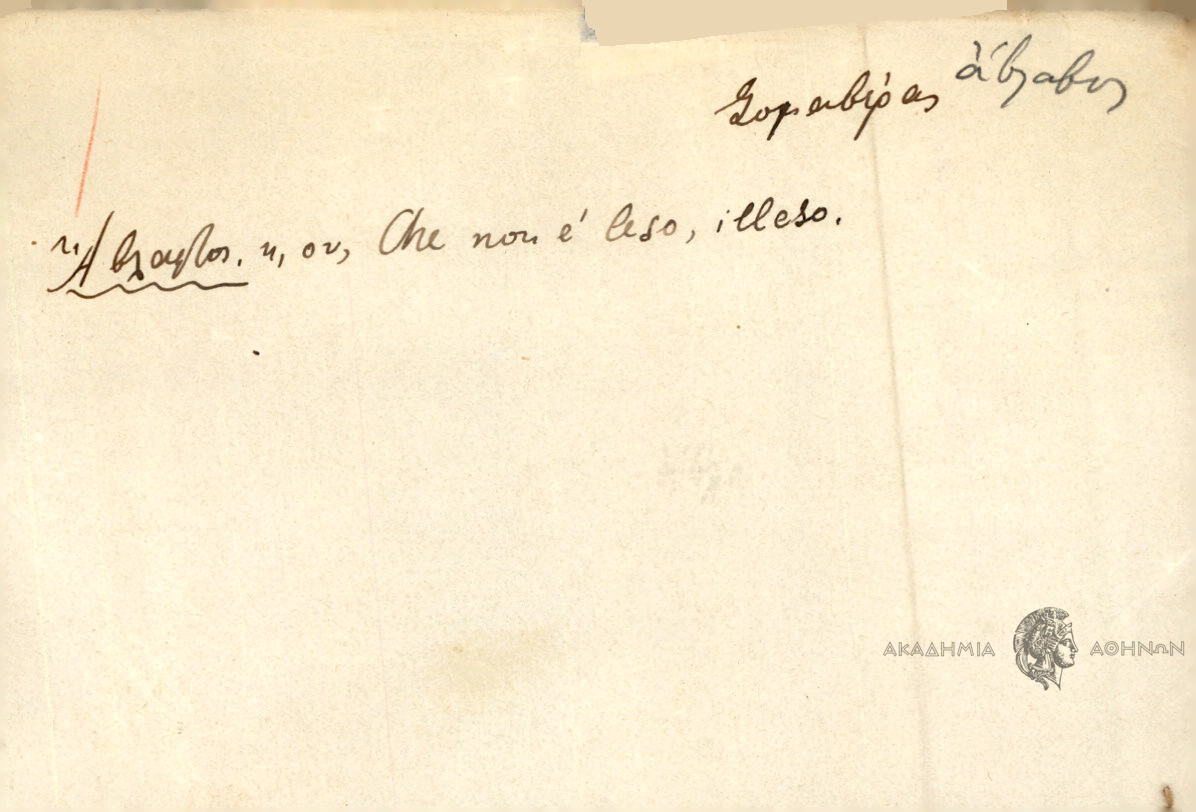 Σομαβέρας ἄβλαβος
Ἄβλαφτος. η, ον, Che non é leso, illeso.
ΑΚΑΔΗΜΙΑ ΑΘΗΝΩΝ